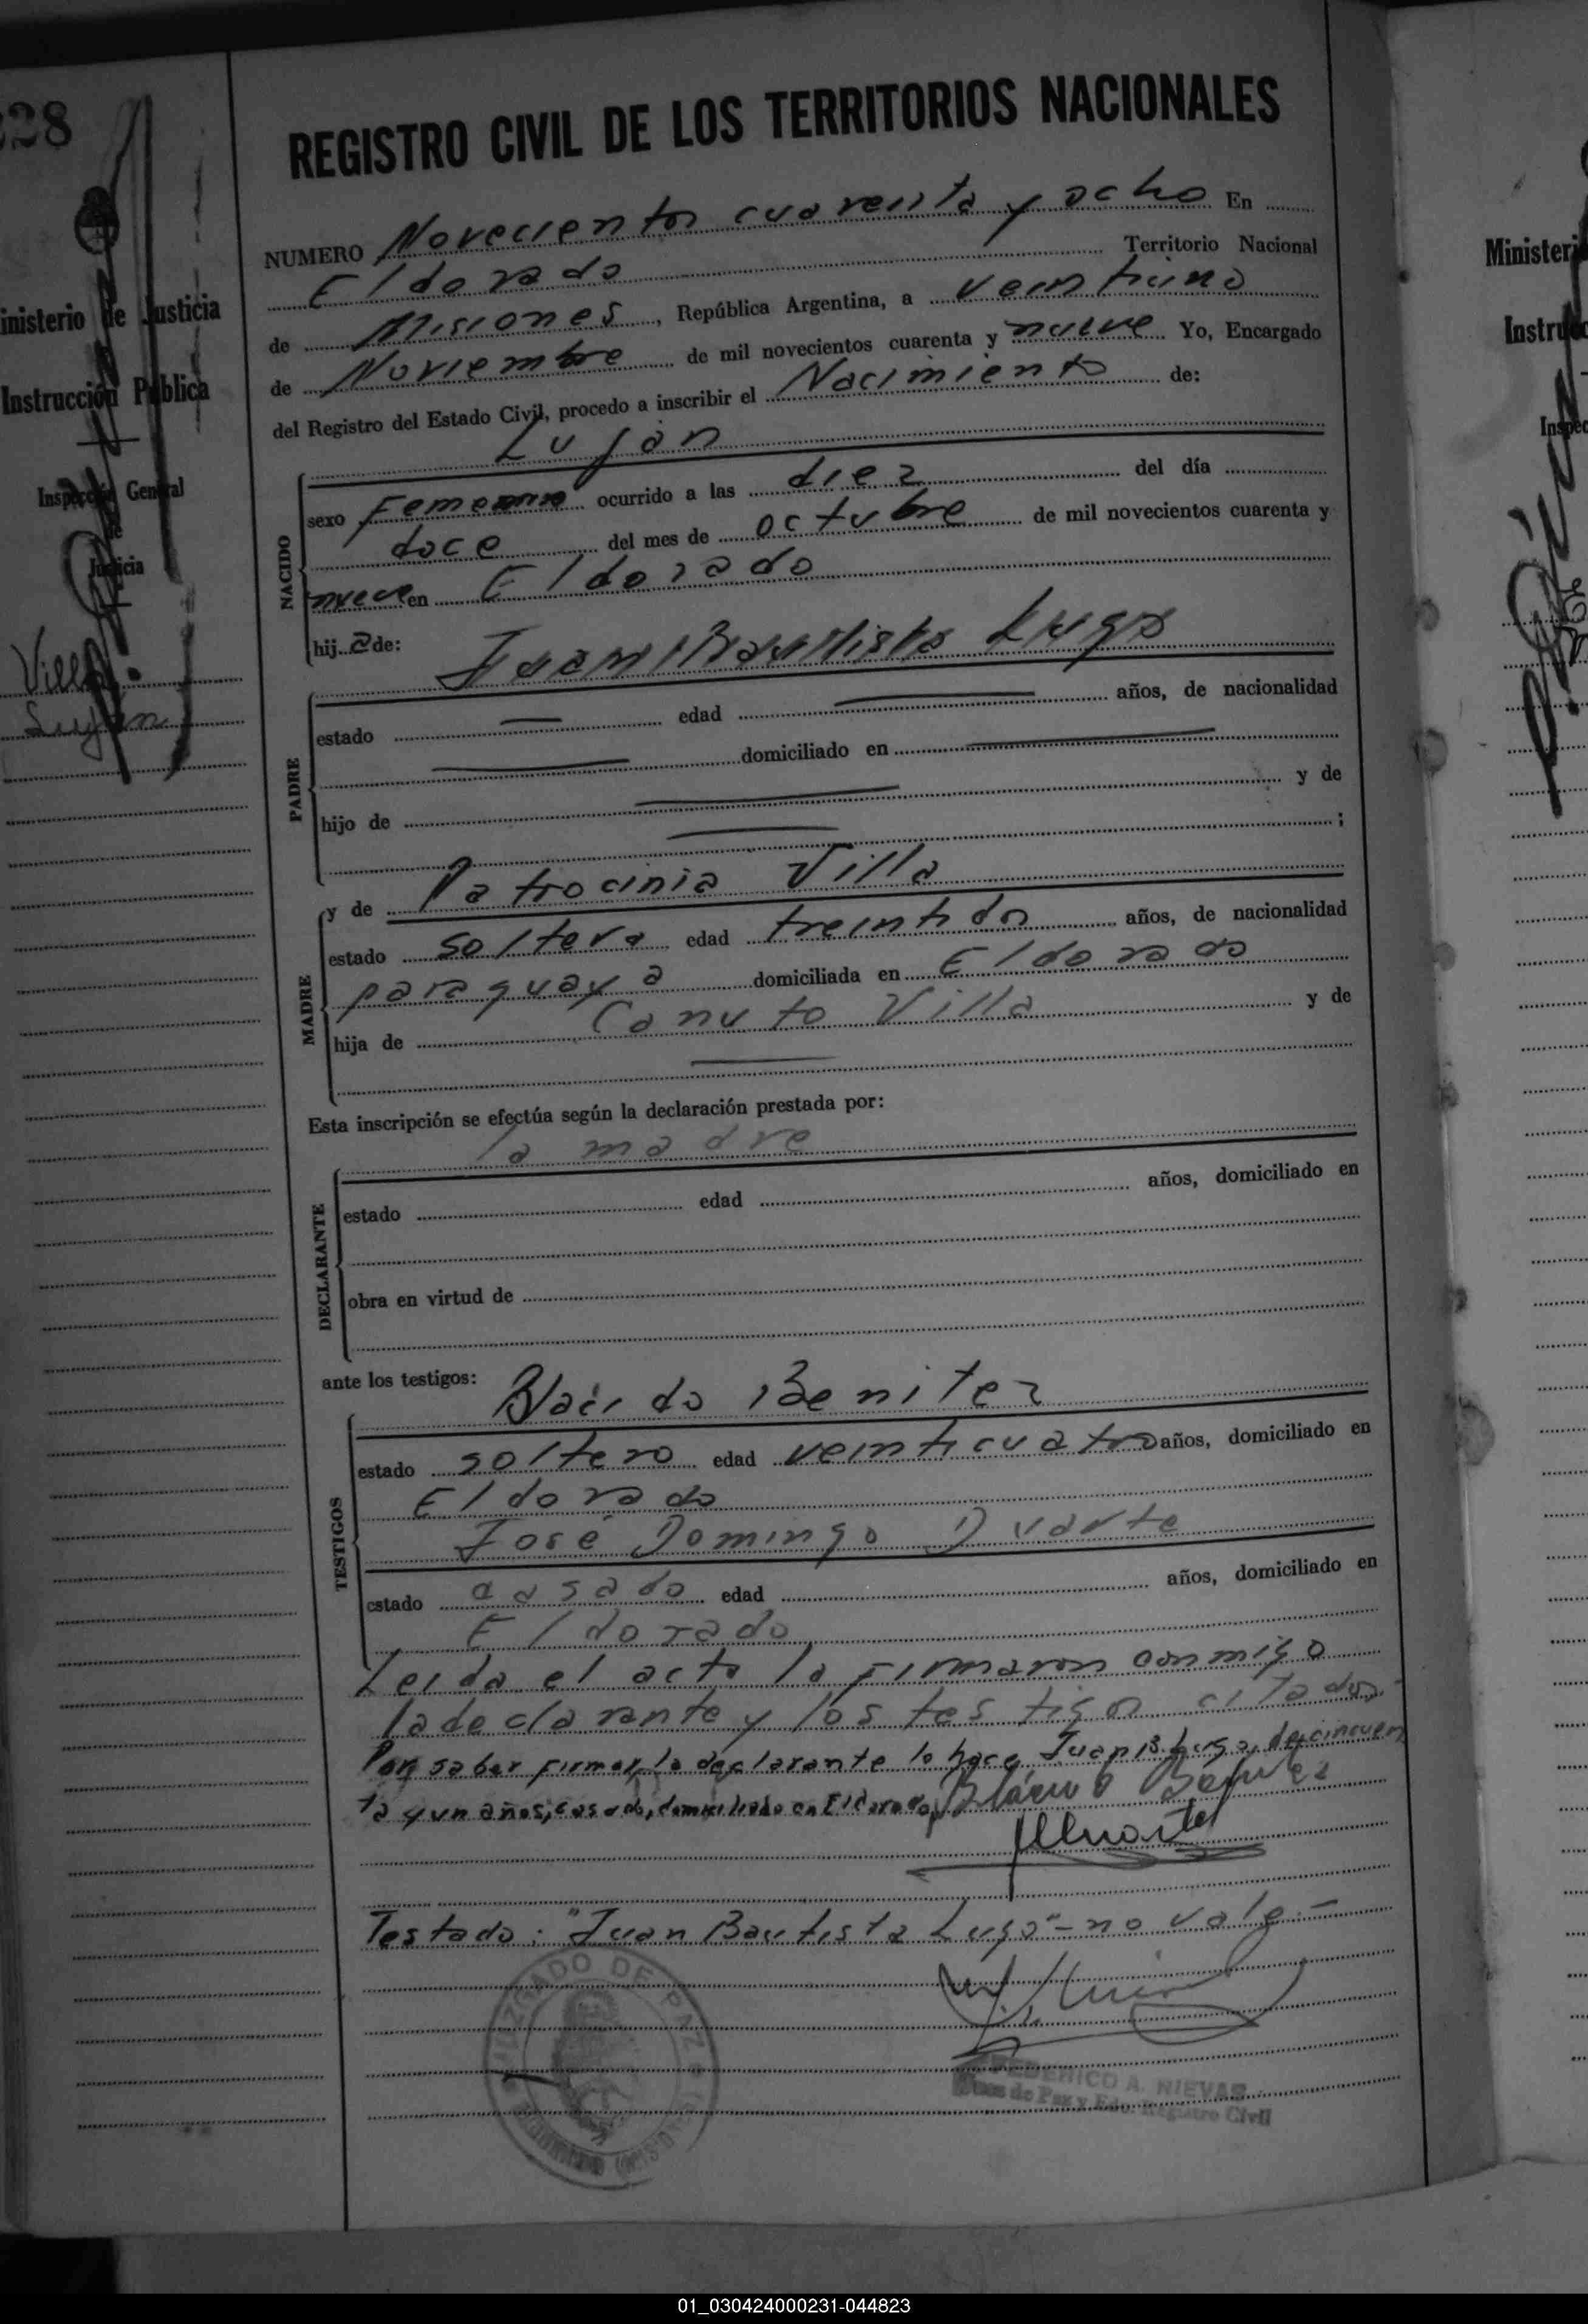 328
REGISTRO CIVIL DE LOS TERRITORIOS NACIONALES
Ministerio de Justicia
Instrucción Pública
Inspección General
de
Justicia
Villa
Luján
NUMERO Novecientos cuarenta y ocho En
Eldorado Territorio Nacional
de Misiones, República Argentina, a veintiuno
de Noviembre de mil novecientos cuarenta y nueve Yo, Encargado
del Registro del Estado Civil, procedo a inscribir el Nacimiento de:
Luján
NACIDO
sexo Femenino ocurrido a las diez del día
doce del mes de octubre de mil novecientos cuarenta y
nueve en Eldorado
hij a de: Juan Bautista Lugo
PADRE
estado edad años, de nacionalidad
domiciliado en
hijo de y de
;
y de Patrocinia Villa
MADRE
estado soltera edad treintidos años, de nacionalidad
paraguaya domiciliada en Eldorado
hija de Canuto Villa y de
Esta inscripción se efectúa según la declaración prestada por:
la madre
DECLARANTE
estado edad años, domiciliado en
obra en virtud de
ante los testigos:
Benitez
TESTIGOS
estado soltero edad veinticuatro años, domiciliado en
Eldorado
José Domingo Duarte
estado casado edad años, domiciliado en
Eldorado
Leida el acta la firmaron conmigo
la declarante y los testigos citados.-
saber firmar la declarante lo hace Juan B. Lugo, de cincuen
ta y un años, casado, domiciliado en Eldorado
Testado: "Juan Bautista Lugo" - no vale.-
JUZGADO DE PAZ
FEDERICO A. NIEVAS
Juez de Paz y Edo. Registro Civil
Minister
Instruc
Inspec
01_030424000231-044823